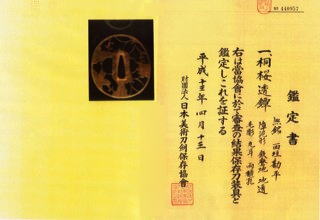 No 440957
鑑定書
一、桐桜透鐔
無銘 西垣勘平
障泥形 鉄磨地 地透
毛彫 丸耳 両櫃孔
右は當協會に於て審査の結果保存刀装具と
鑑定しこれを証する
平成十三年四月十三日
財団法人日本美術刀剣保存協會